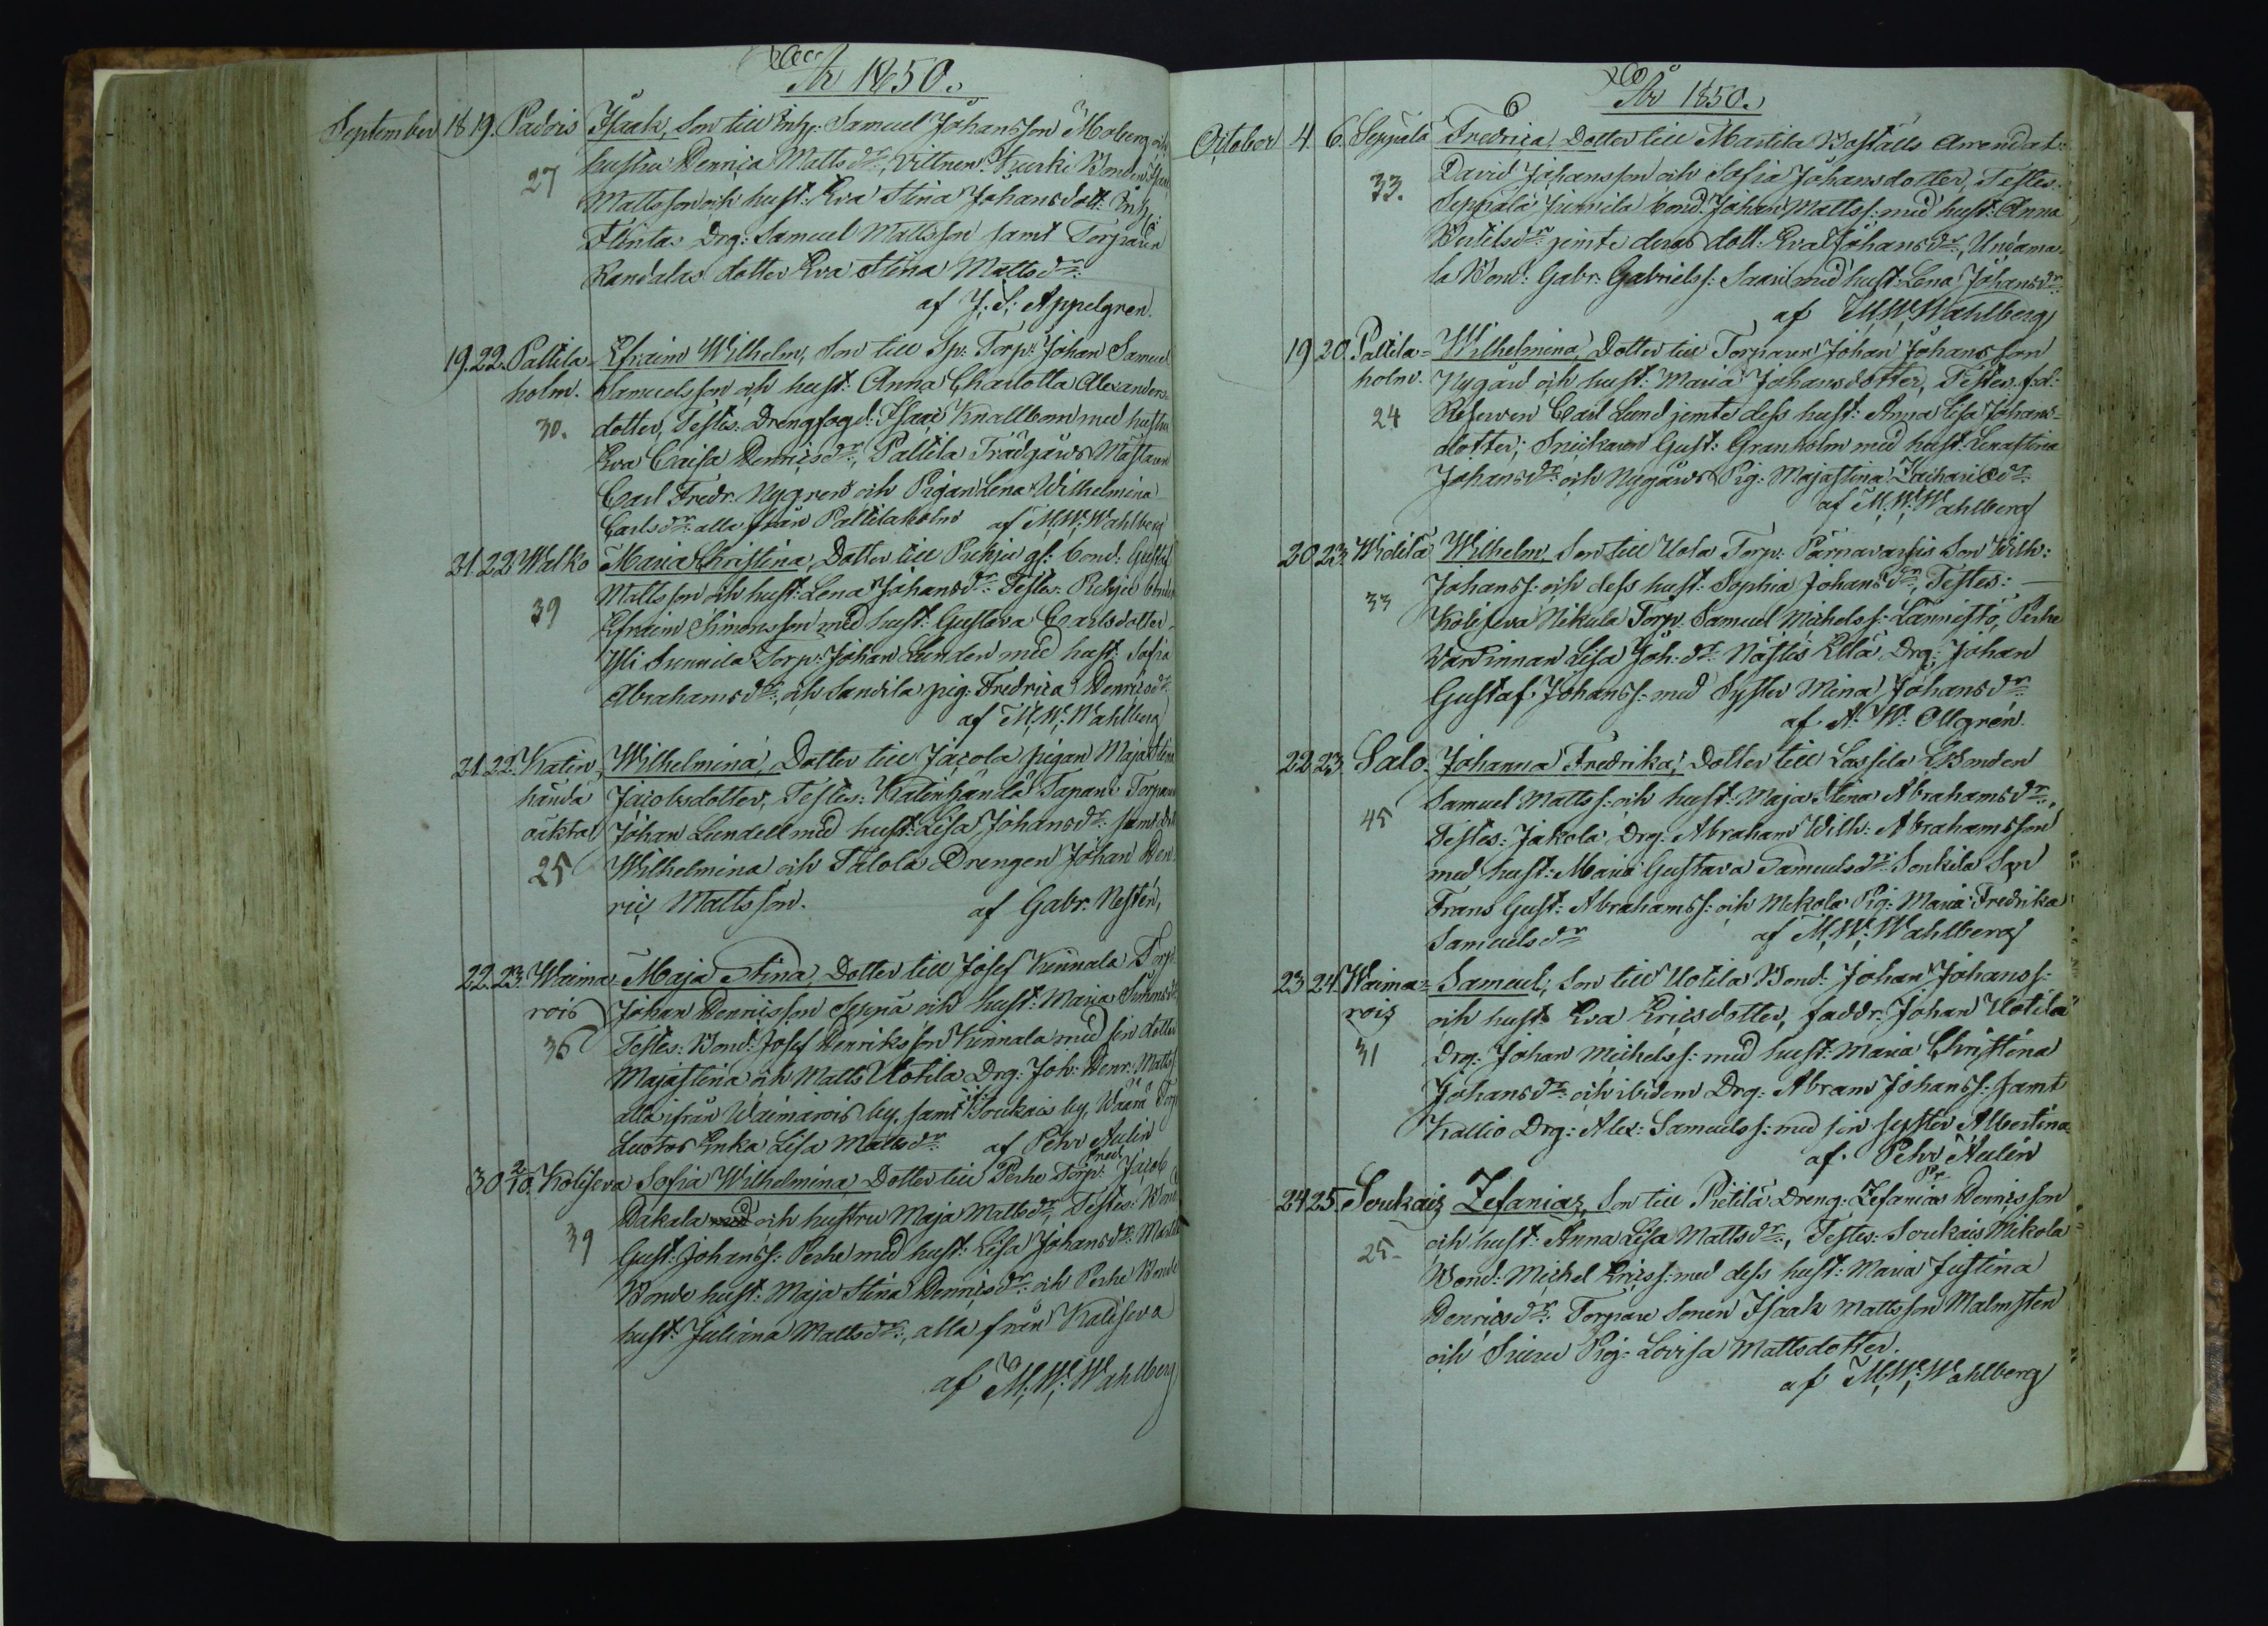 År 1850.
September 18 19. Padois Isaak, Son till Inh: Samuel Johansson Moberg och
hustru Henrica Matts dr:, Vittnen: Kurki Bonden Isaac
27 Mattsson och hust: Eva Stina Johansdott: Inh:
Flinta. Drg: Samuel Mattsson samt Torparen
Randalas dotter Eva Stina Matts dr:
af J. S. Appelgren.
19. 22. Paltila- Efraim Wilhelm, Son till Sp: Torp: Johan Samuel
holm. Samuelsson och hust: Anna Charlotta Alexanders-
30. dotter, Testes: Drengfogd: Isaac Knallbom med hustru
Eva Caisa Henrics dr:, Paltila Trädgårds Mästaren
Carl Fredr: Nygren och Pigan Lena Wilhelmina
Carls dr: alla från Paltilaholm af M. W. Wahlberg
21. 22. Walko Maria Christina, Dotter till Pichjei gf: bond: Gustaf
Mattsson och hust: Lena Johans dr: Testes: Pichjei
39 Efraim Simonsson med hust: Gustava Carlsdotter
Yli Sunnila Torp: Johan Lunden med hust: Sofia
Abrahams dr:, och Sandila pig: Fredrica Henrics dr:
af M. W. Wahlberg
21. 22. Katin- Wilhelmina, Dotter till Jacola pigan Maja Stina
händä Jacobsdotter, Testes: Katinhändä Tapani Torparen
Johan Lundell med hust: Lisa Johans dr: samt
25 Wilhelmina och Talola Drengen Johan Hen-
ric Mattsson. af Gabr. Nestén,
22. 23. Waima- Maja Stina, Dotter till Josef Kinnala Torp:
rois Johan Henricsson Seppä och hust: Maria Simons dr:
36 Testes: Bond: Josef Henriksson Kinnala med sin dotter
Majastina och Matts Uotila Drg: Joh: Henr: Mattss:
alla ifrån Waimarois by, samt Soukais by, Waara Torp:
Luotos Enka Lisa Matts dr af Pehr Aulin
30 2/10. Koliseva Sofia Wilhelmina, Dotter till Perhe Torp: Fred: Jacob
Hakala med och hustru Maja Matts dr, Testes: Bond
39 Gust: Johanss: Perhe med hust: Lisa Johans dr: Martila
Bonde hust: Maja Stina Henrics dr: och Perhe Bonde
hust: Juliana Matts dr:, alla från Koliseva
af M. W. Wahlberg
År 1850.
October 4. 6. Seppälä Fredrica, Dotter till Martila Boställs Arrendat:
David Johansson och Sofia Johansdotter, Testes:
33. Seppälä Jumila bond: Johan Mattss: med hust: Anna
Bertils dr: jemte deras dott: Eva Johans dr:, Undama-
la Bond: Gabr: Gabrielss: Saari med hust: Lena Johans dr:
af M. W. Wahlberg
19 20. Paltila- Wilhelmina, Dotter till Torparen Johan Johansson
holm. Nygård och hust: Maria Johansdotter, Testes: f.d.
24 Reserven Carl Lund jemte dess hust: Anna Lisa Johans-
dotter, Snickaren Gust: Granholm med hust: Lenastina
Johans dr och Nygårds Pig: Majastina Zacharie dr:
af M. W. Wahlberg
20 23. Widila Wilhelm, Son till Uola Torp: Pärnavarsis Son Wilh:
Johanss: och dess hust: Sophia Johans dr, Testes:
33 Koliseva Nikula Torp: Samuel Michelss: Lännistö, Perhe
Värdinnan Lisa Joh: dr: Nästis Ellä, Drg: Johan
Gustaf Johanss: med Syster Mina Johans dr
af A. W. Ollgrén.
22. 23. Salo. Johanna Fredrika, Dotter till Lassila Bonden
Samuel Mattss: och hust: Maja Stina Abrahams dr,
45 Testes: Jakola Drg: Abraham Wilh: Abrahamsson
med hust: Maria Gustava Samuels dr: Sonkila Son
Frans Gust: Abrahamss: och Mikola Pig: Maria Fredrika
Samuels dr af M. W. Wahlberg
23 24. Waima- Samuel, Son till Uotila Bond: Johan Johanss:
rois och hust: Eva Ericsdotter, faddr: Johan Uotila
31 Drg: Johan Michelss: med hust: Maria Christina
Johans dr: och ibidem Drg: Abram Johanss: samt
Kallio Drg: Alex: Samuelss: med sin syster Albertina
af Pehr Aulin
24 25. Soukais Zefanias, Son till Pietilä Dreng: Zefanias Henricsson
och hust: Anna Lisa Matts dr:, Testes: Soukais Mikola
25. Bond: Michel Ericss: med dess hust: Maria Justina
Henrics dr: Torpare Sonen Isaak Mattsson Malmsten
och Siuru Pig: Lovisa Mattsdotter.
af M. W. Wahlberg